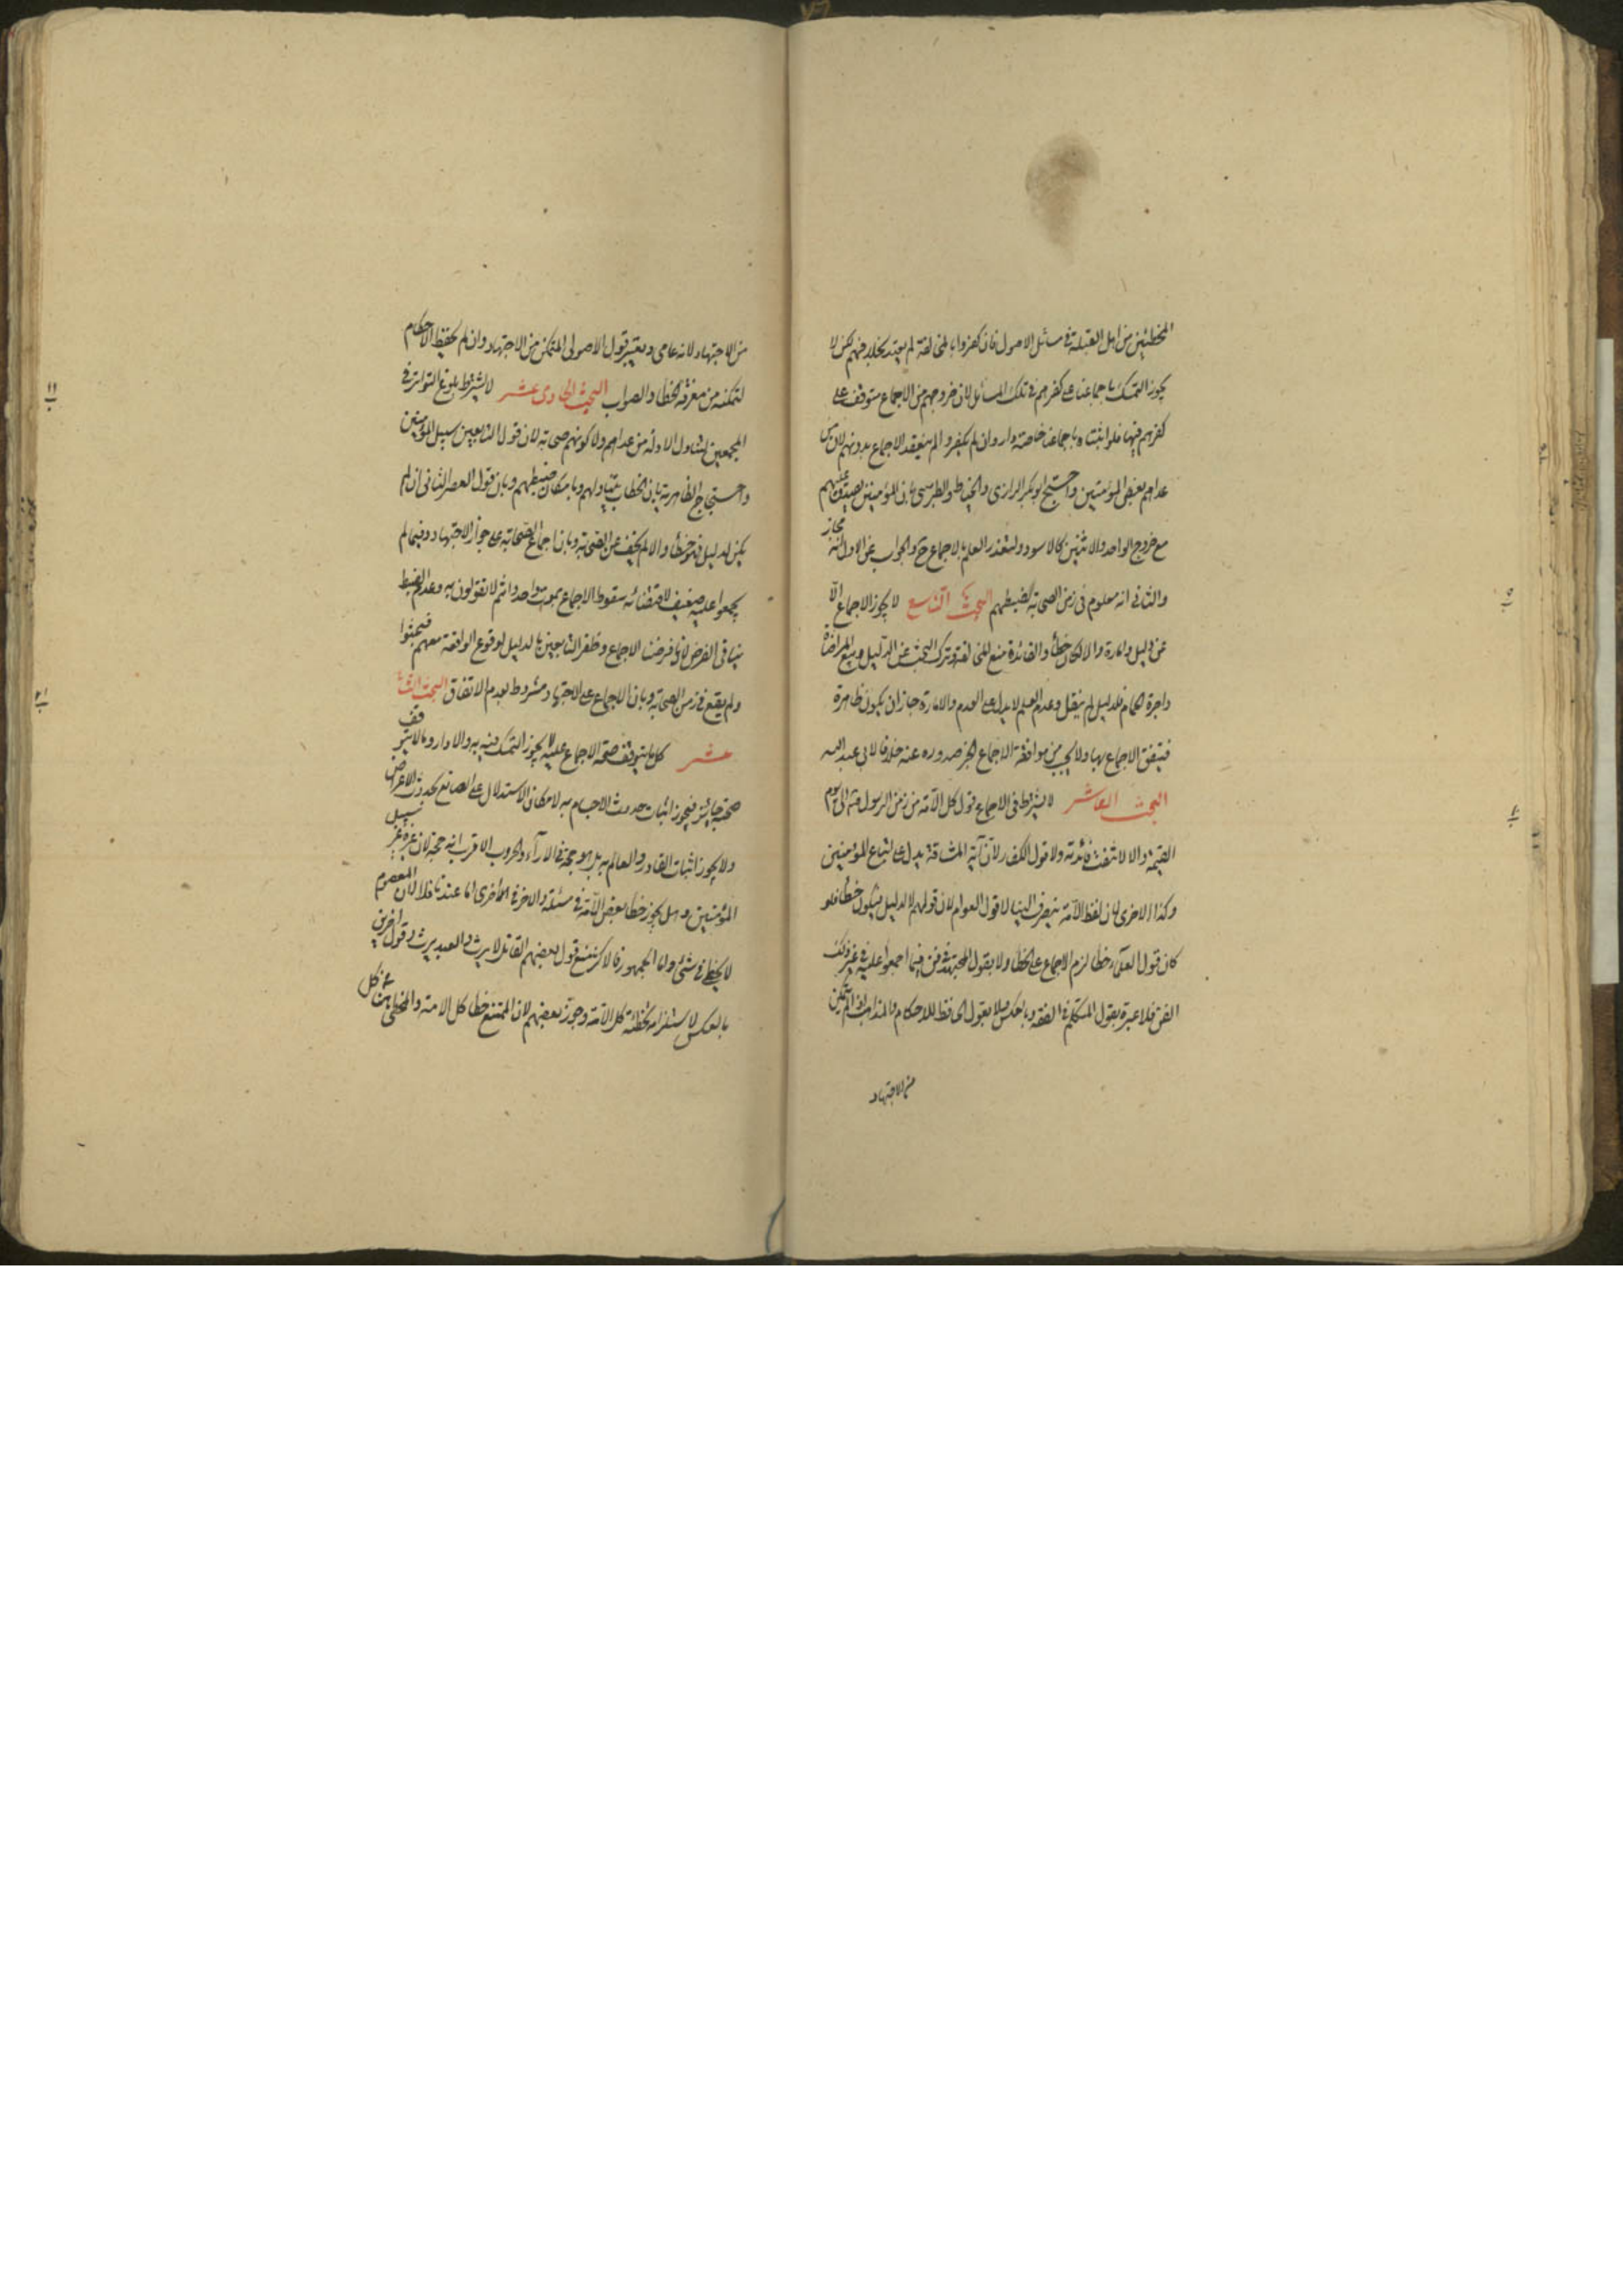 المخطئين من اهل القبلة في مسائل الاصول فان كفروا بالمخالفة لم يعتد بخلافهم لكن لا
يجوز التمسك باجماعنا على كفرهم في تلك المسائل لان خروجهم من الاجماع متوقف على
كفرهم فيها فلو اثبتناه باجماعنا خاصة دار وان لم يكفروا لم ينعقد الاجماع بدونهم لان من
عداهم بعض المؤمنين واحتج ابو بكر الرازي والخياط والطبرسي بان المؤمنين يصدق عليهم
مع خروج الواحد والاثنين كالاسود ولتعذر العلم بالاجماع ح والجواب عن الاول انه مجاز
والثاني انه معلوم في زمن الصحابة لضبطهم البحث التاسع لا يجوز الاجماع الا
عن دليل وامارة والا لكان خطأ والفائدة منع المخالفة وترك البحث عن الدليل وبيع المراضاة
واجرة الحمام للدليل لم ينقل وعدم العلم لا يدل على العدم والامارة جاز ان يكون ظاهرة
فيتفق الاجماع بها ولا يجب من موافقة الاجماع الخبر صدوره عنه خلافا لابي عبد الله
البحث العاشر لا يشترط في الاجماع قول كل الامة من زمن الرسول ص الى يوم
القيمة والا لانتفت فائدته ولا قول الكفار لان آية المشاقة يدل على اتباع المؤمنين
وكذا الاخرى لان لفظ الامة ينصرف الينا لا قول العوام لان قولهم لا لدليل فيكون خطأ فلو
كان قول العلماء خطأ لزم الاجماع على الخطا ولا بقول المجتهد في فن فيما اجمعوا عليه في غير ذلك
الفن فلا عبرة بقول المتكلم في الفقه وبالعكس ولا بقول الحافظ للاحكام والمذاهب اذا لم يتمكن
من الاجتهاد
من الاجتهاد لانه عامي ويعتبر قول الاصولي المتمكن من الاجتهاد وان لم يحفظ الاحكام
لتمكنه من معرفة الخطا والصواب البحث الحادي عشر لا يشترط بلوغ التواتر في
المجمعين لتناول الادلة من عداهم ولا كونهم صحابة لان قول التابعين سبيل المؤمنين
واحتجاج الظاهرية بان الخطاب يتناولهم وبامكان ضبطهم وبان قول العصر الثاني ان لم
يكن لدليل فهو خطأ والا لم يخف عن الصحابة وبان اجماع الصحابة على جواز الاجتهاد وفيما لم
يجمعوا عليه ضعيف لاقتضائه سقوط الاجماع بموت واحد وانتم لا تقولون به وعدم الضبط
ينافي الفرض لانا فرضنا الاجماع وظفر التابعين بالدليل لوقوع الواقعة معهم فبحثوا
ولم يقع في زمن الصحابة وبان الاجماع على الاجتهاد مشروط بعدم الاتفاق البحث الثاني
عشر كل ما يتوقف صحة الاجماع عليه لا يجوز التمسك فيه به والا دار وما لا يتوقف
صحته جائز فيجوز اثبات حدوث الاجسام به لامكان الاستدلال على الصانع بحدوث الاعراض
ولا يجوز اثبات القادر والعالم به بل هو حجة في الآراء والحروب الاقرب انه حجة لان غيره غير سبيل
المؤمنين وهل يجوز خطأ بعض الامة في مسئلة والاخر في الاخرى اما عندنا فلا لان المعصوم
لا يخطئ في شئ واما الجمهور فالاكثر منع قول بعضهم القاتل لا يرث والعبد يرث وقول اخرين
بالعكس لاستلزامه تخطئة كل الامة وجوزه بعضهم لان الممتنع خطا كل الامة والمخطئ هنا في كل